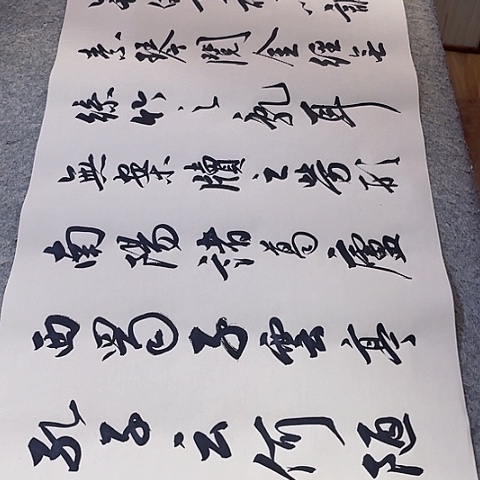 素琴閱金經無
絲竹之亂耳
無案牘之勞形
南陽諸葛廬
西蜀子雲亭
孔子云何陋